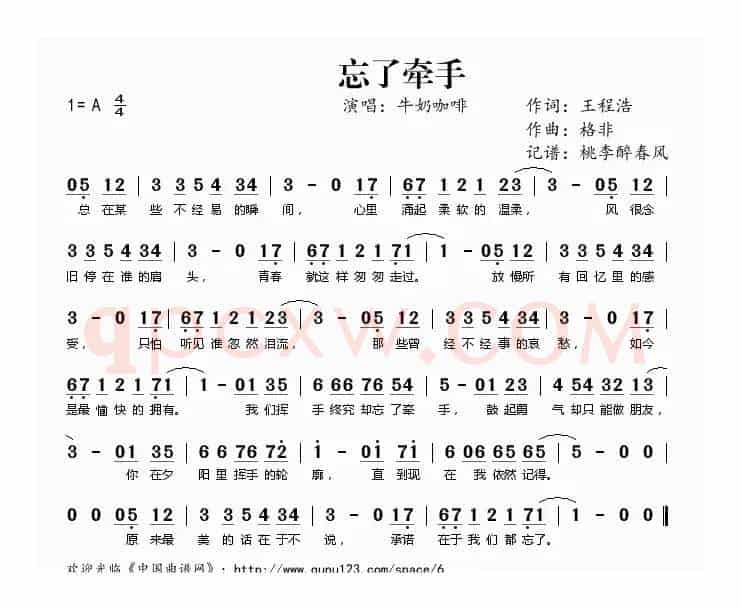 忘了牵手
1= A 4/4 演唱：牛奶咖啡 作词：王程浩
作曲：格非
记谱：桃李醉春风
05 12 | 3 3 5 4 34 | 3 - 0 17 | 67 1 2 1 23 | 3 - 05 12 |
总在某 些不经易的瞬 间， 心里 涌起柔软的温柔， 风很念
3 3 5 4 34 | 3 - 0 17 | 67 1 2 1 71 | 1 - 05 12 | 3 3 5 4 34 |
旧停在谁的肩 头， 青春 就这样匆匆走过。 放慢所 有回忆里的感
3 - 0 17 | 67 1 2 1 23 | 3 - 05 12 | 3 3 5 4 34 | 3 - 0 17 |
受， 只怕 听见谁忽然泪流， 那些曾 经不经事的哀 愁， 如今
67 1 2 1 71 | 1 - 01 35 | 6 66 76 54 | 5 - 03 34 | 5 54 32 13 |
是最愉快的拥有。 我们挥 手终究却忘了牵 手， 鼓起勇 气却只能做朋友，
3 - 01 35 | 6 6 76 72 | 1 - 01 76 | 1 76 65 65 | 5 - 0 0 |
你在夕 阳里挥手的轮 廓， 直到现 在我依然记得。
0 0 05 12 | 3 3 5 4 34 | 3 - 0 17 | 67 1 2 1 71 | 1 - 0 0 ‖
原来最 美的话在于不 说， 承诺 在于我们都忘了。
qpcxw.COM
欢迎光临《中国曲谱网》：http://www.qupu123.com/space/6